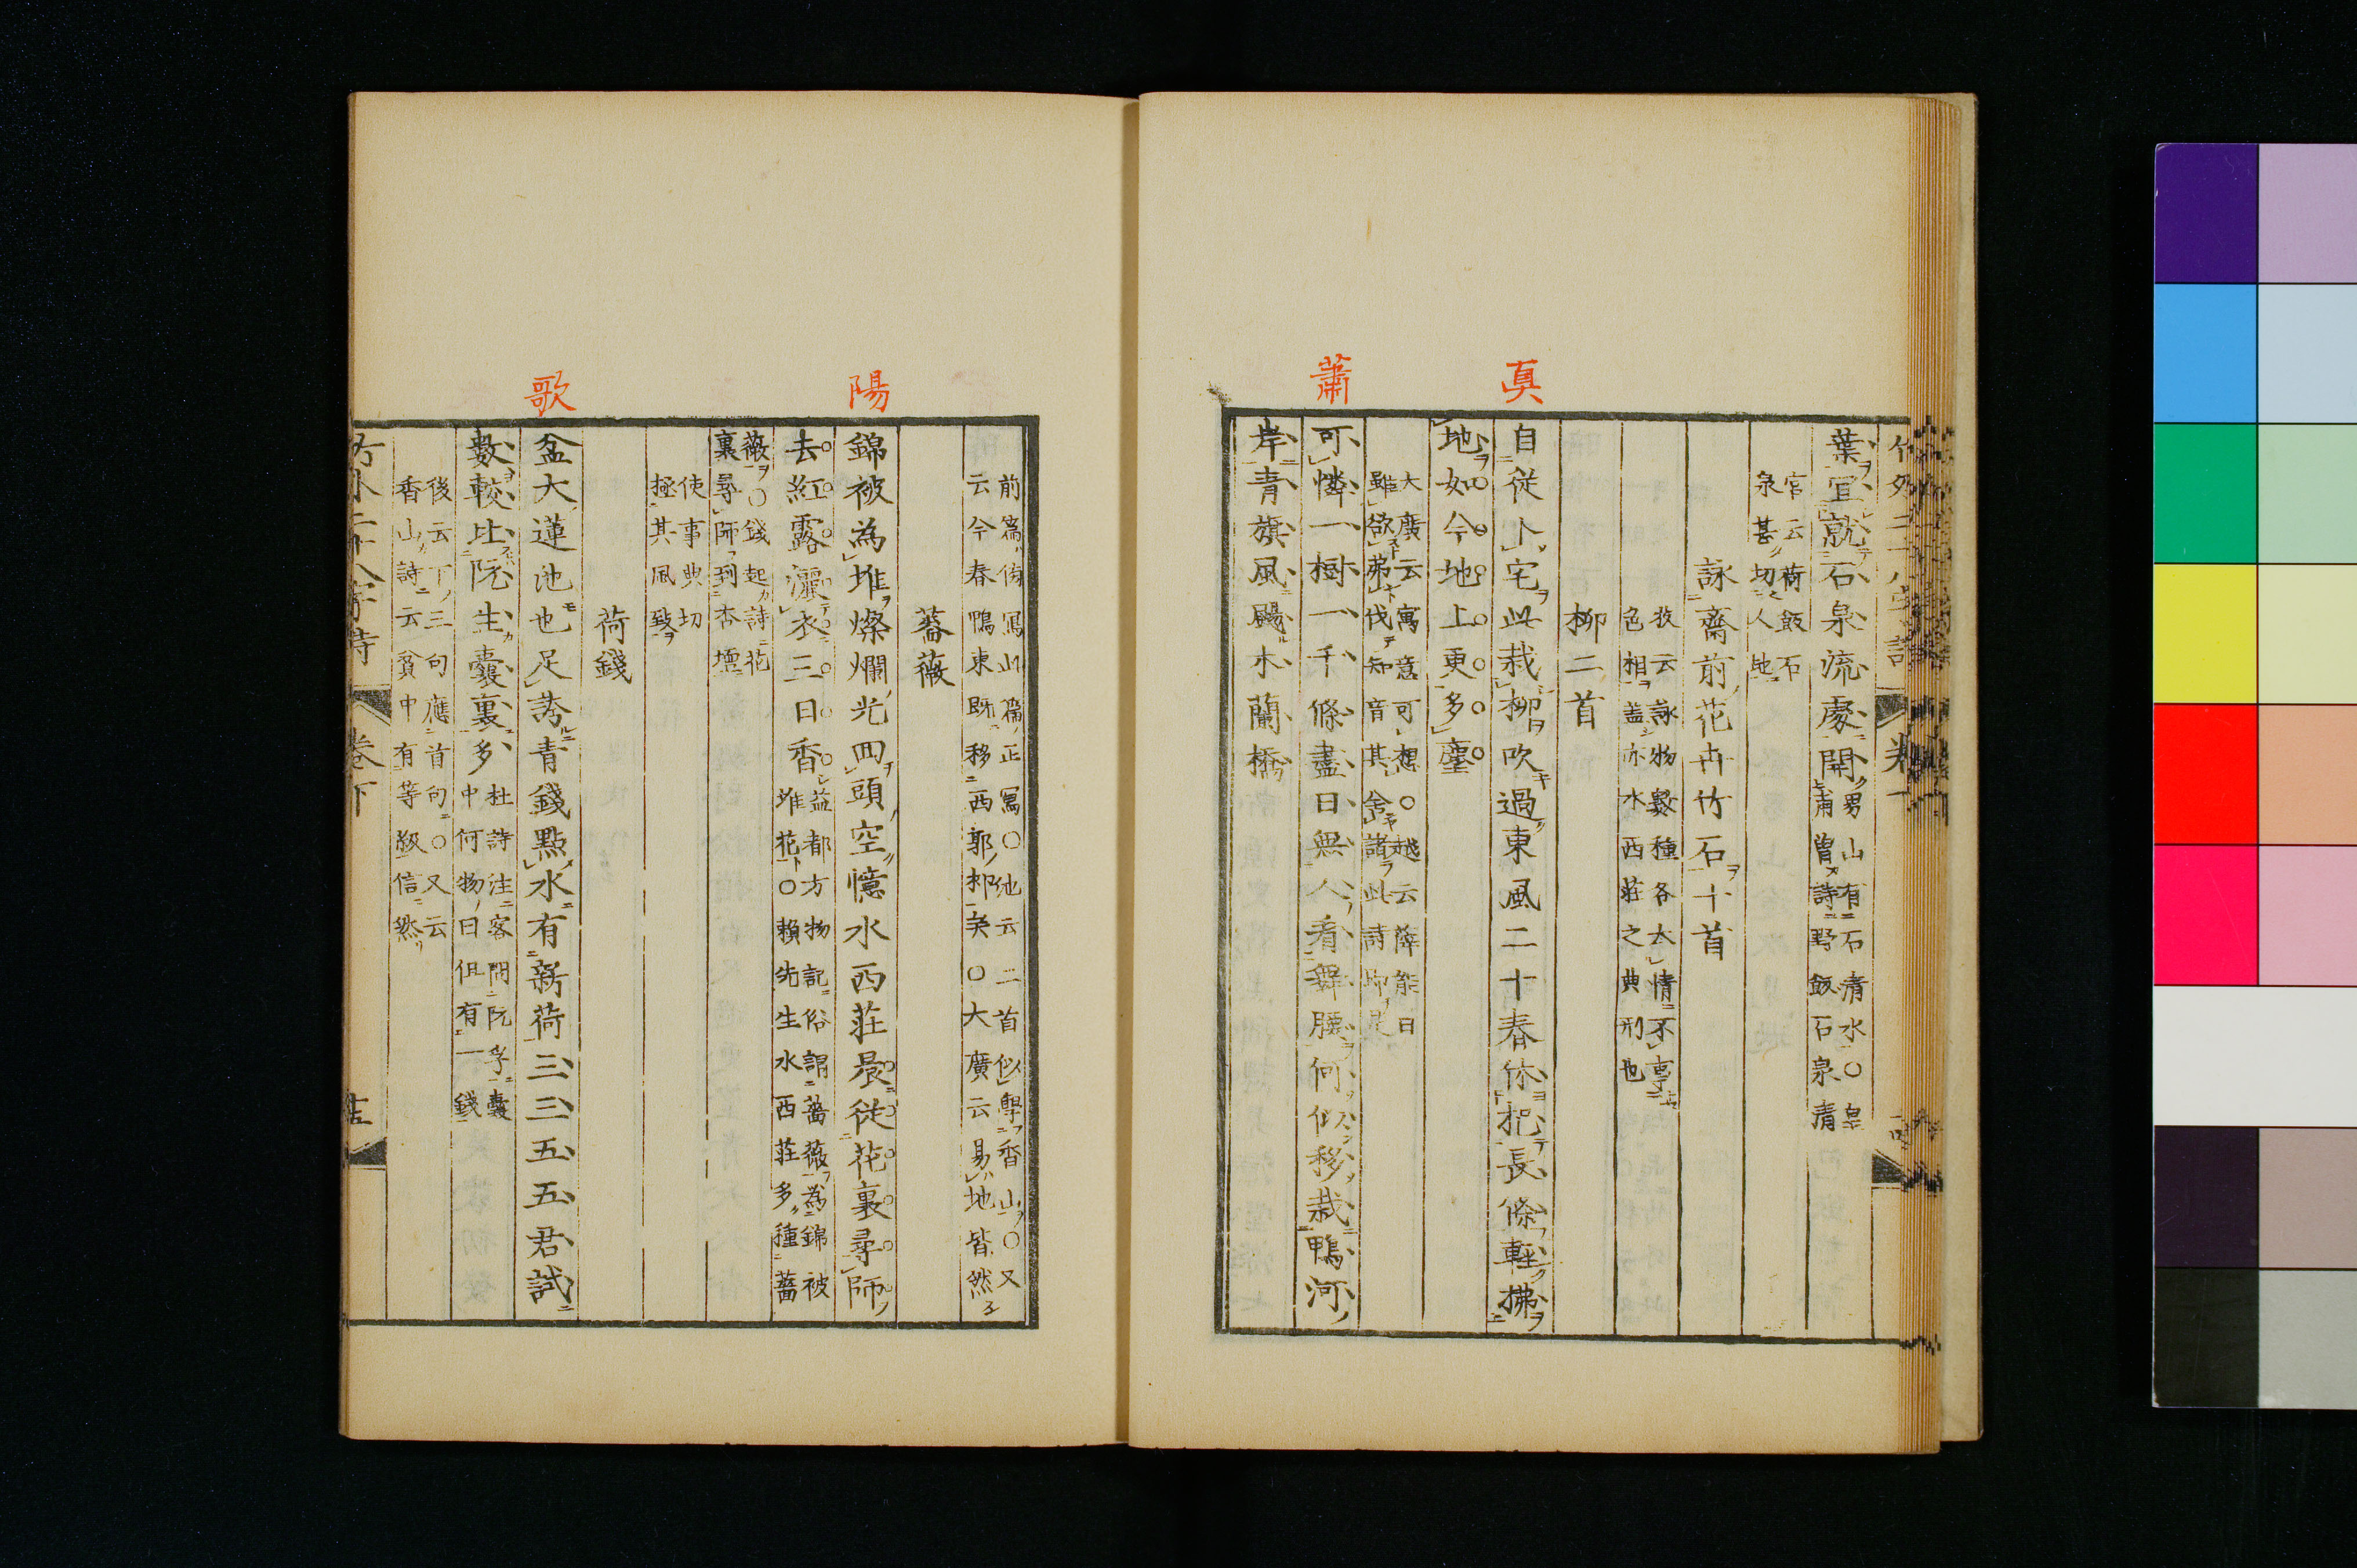 眞
蕭
葉宜就石泉流處開
男山有石清水○皇
甫曾詩野飯石泉清
宮云荷飯石
泉甚切人地
詠齋前花卉竹石十首
牧云詠物數種各大情不事
色相盖亦水西莊之典刑也
柳二首
自從卜宅此栽柳吹過東風二十春休把長條輕拂
地如今地上更多塵
大廣云寓意可想○越云薛能曰
雖欲弟伐知音其舍諸此詩
可憐一樹一千條盡日無人看舞腰何似移栽鴨河
岸青旗風颺木蘭橋
陽
歌
前篇傍寫此篇正寫○仙云二首似學香山○又
云今春鴨東既移西郭邨矣○大廣云易地皆然
薔薇
錦被為堆燦爛光回頭空憶水西莊晨從花裏尋師
去紅露灑衣三日香
益都方物記俗謂薔薇為錦被
堆花○賴先生水西莊多種薔
薇○錢起詩花
裏尋師到杏壇
使事典切
極其風致
荷錢
盆大蓮池也足誇青錢點水有新荷三三五五君試
數較比阮生囊裏多
杜詩注客問阮孚囊
中何物曰但有一錢
後云下三句應首句○又云
香山詩云貧中有等級信然
竹外二十八字詩
卷下